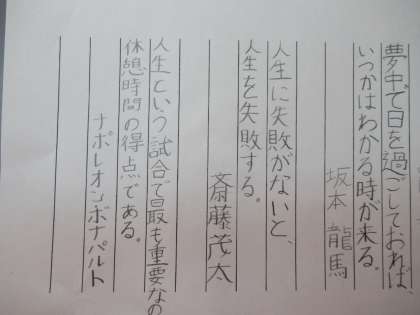 夢中で日を過ごしておれば、
いつかはわかる時が来る。
坂本龍馬
人生に失敗がないと、
人生を失敗する。
斎藤茂太
人生という試合で最も重要なの
休憩時間の得点である。
ナポレオンボナパルト